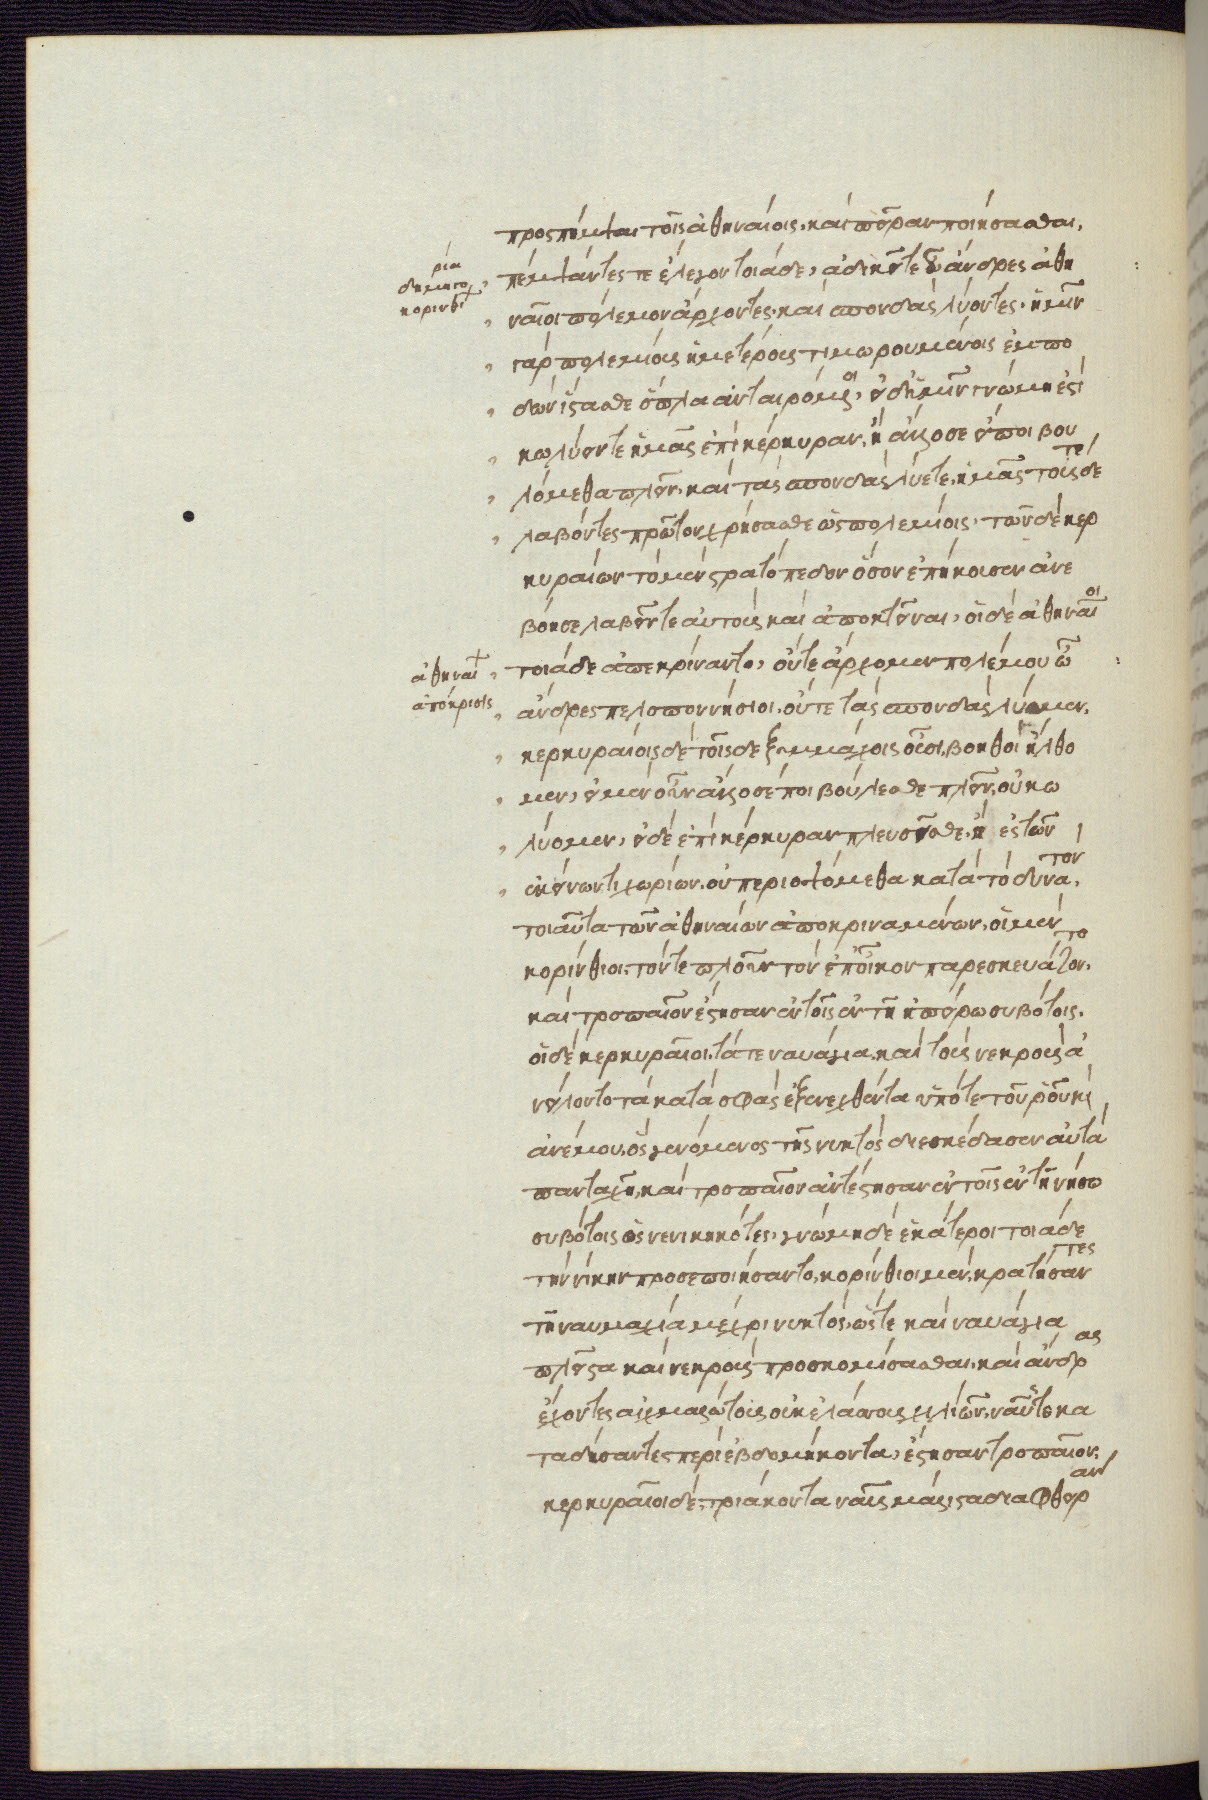 προσπέμψαι τοῖς ἀθηναίοις. καὶ πεῖραν ποιήσασθαι.
δημηγορία
κορινθί
πέμψαντές τε ἔλεγον τοιάδε, ἀδικεῖτε ὦ ἄνδρες ἀθη
ναῖοι πολέμου ἄρχοντες. καὶ σπονδὰς λύοντες. ἡμῖν
γὰρ πολεμίους ἡμετέρους τιμωρουμένοις ἐμπο
δὼν ἵστασθε ὅπλα ἀνταιρόμενοι, εἰ δ' ἡμῖν γνώμη ἐστὶ
κωλύειν τε ἡμᾶς ἐπὶ κέρκυραν. ἢ ἄλλοσε εἴ ποι βου
λόμεθα πλεῖν. καὶ τὰς σπονδὰς λύετε. ἡμᾶς τούς τε δὲ
λαβόντες πρῶτον χρήσασθε ὡς πολεμίοις. τῶν δὲ κερ
κυραίων τὸ μὲν στρατόπεδον ὅσον ἐπήκουσεν ἀνε
βόησε λαβεῖν τε αὐτοὺς καὶ ἀποκτεῖναι, οἱ δὲ ἀθηναῖοι
ἀθηναί
ἀπόκρισις
τοιάδε ἀπεκρίναντο, οὔτε ἄρχομεν πολέμου ὦ
ἄνδρες πελοποννήσιοι. οὔτε τὰς σπονδὰς λύομεν.
κερκυραίοις δὲ τοῖσδε ξυμμάχοις οὖσι. βοηθοὶ ἤλθο
μεν, εἰ μὲν οὖν ἄλλοσέ ποι βούλεσθε πλεῖν. οὐ κω
λύομεν, εἰ δὲ ἐπὶ κέρκυραν πλευσεῖσθε. ἢ ἐς τῶν
ἐκείνων τι χωρίων. οὐ περιοψόμεθα κατὰ τὸ δυνατόν.
τοιαῦτα τῶν ἀθηναίων ἀποκριναμένων. οἱ μὲν
κορίνθιοι. τόν τε πλοῦν τὸν ἐπ' οἴκου παρεσκευάζοντο.
καὶ τροπαῖον ἔστησαν ἐν τοῖς ἐν τῇ ἠπείρω συβότοις.
οἱ δὲ κερκυραῖοι. τά τε ναυάγια. καὶ τοὺς νεκροὺς ἀ
νείλοντο τὰ κατὰ σφᾶς ἐξενεχθέντα ὑπό τε τοῦ ῥοῦ καὶ
ἀνέμου. ὃς γενόμενος τῆς νυκτὸς διεσκέδασεν αὐτὰ
πανταχῆ. καὶ τροπαῖον ἀντέστησαν ἐν τοῖς ἐν τῇ νήσω
συβότοις ὡς νενικηκότες, γνώμη δὲ ἑκάτεροι τοιάδε
τὴν νίκην προσεποιήσαντο. κορίνθιοι μὲν. κρατήσαντες
τῇ ναυμαχία μέχρι νυκτός. ὥστε καὶ ναυάγια
πλεῖστα καὶ νεκροὺς προσκομίσασθαι. καὶ ἄνδρας
ἔχοντες αἰχμαλώτους οὐκ ἐλάσσους χιλίων. ναῦς τε κα
ταδύσαντες περὶ ἑβδομήκοντα, ἔστησαν τροπαῖον.
κερκυραῖοι δὲ. τριάκοντα ναῦς μάλιστα διαφθείραν